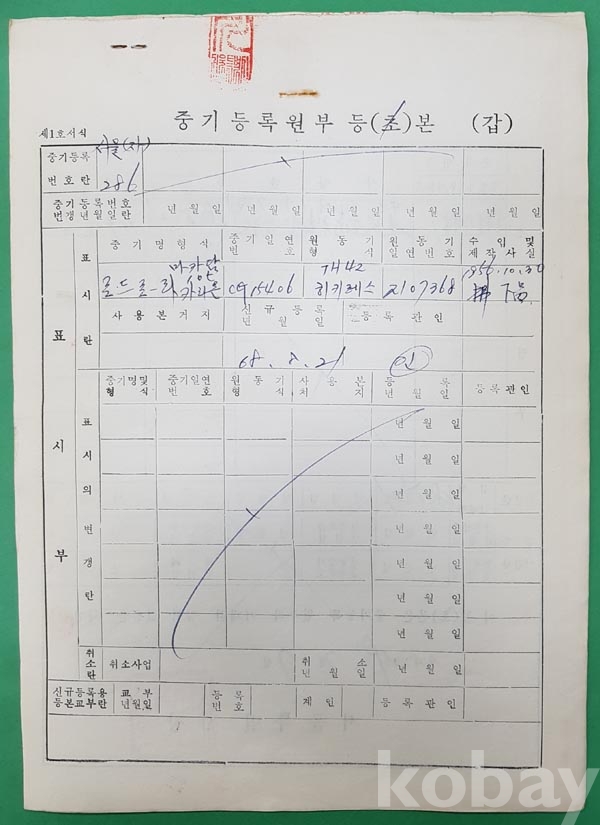 중기등록원부 등(초)본 (갑)
제1호서식
중기등록 서울(자)
번호란 286
중기등록번호
변갱년월일란 년 월 일 년 월 일 년 월 일 년 월 일 년 월 일
표시란
중기명형식 중기일연번호 원동기형식 원동기일연번호 수입및제작사실
로드로라 마카담 15406 히키레스 107368 1956.10.30
사용본거지 신규등록년월일 등록관인
68. 8. 21 인
중기명및형식 중기일연번호 원동기형식 사용본처지 등록년월일 등록관인
표시의변갱란
년 월 일
년 월 일
년 월 일
년 월 일
년 월 일
년 월 일
년 월 일
표시부
취소란 취소사업 취소년월일 년 월 일
신규등록용등본교부란 교부년월일 등록번호 계인 등록관인
kobay